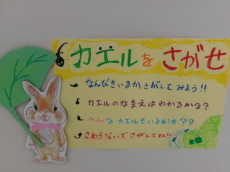 カエルをさがせ
なんびきいるか さがしてみよう!!
カエルのなまえはわかるかな?
へんなカエルもいるかも??
さわらないでさがしてね!!